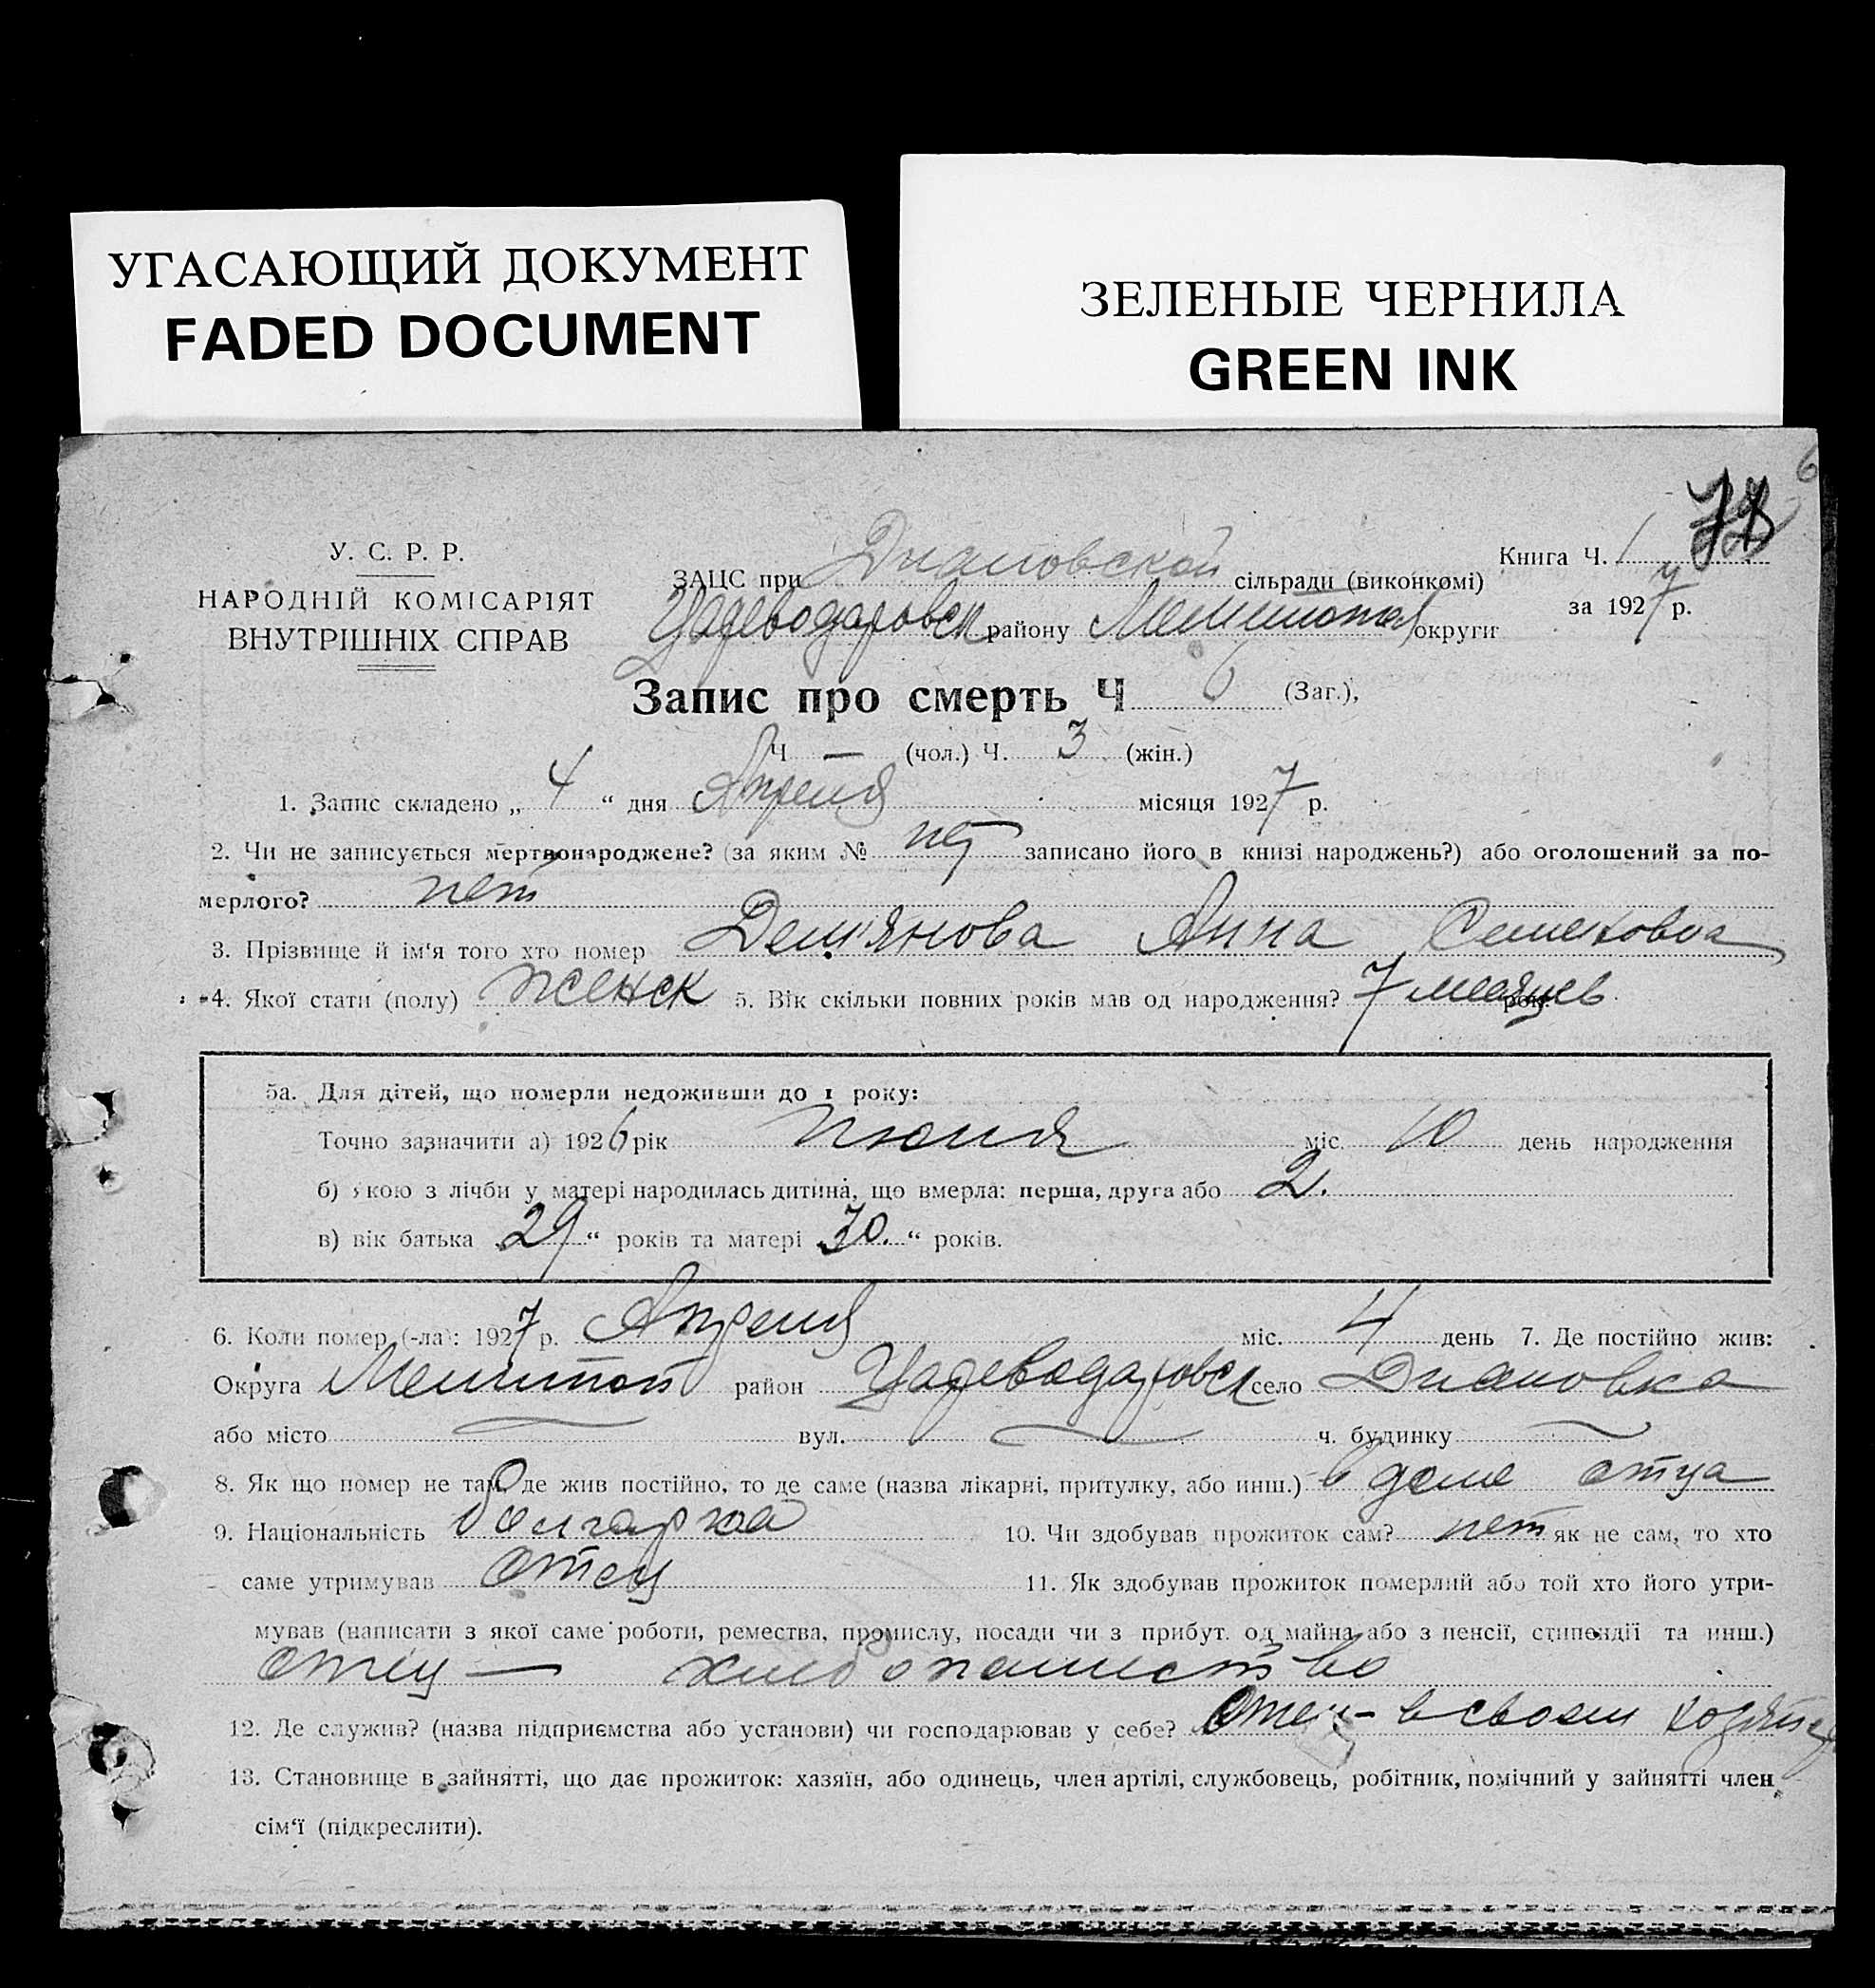 УГАСАЮЩИЙ ДОКУМЕНТ
FADED DOCUMENT
ЗЕЛЕНЫЕ ЧЕРНИЛА
GREEN INK
6
У. С. Р. Р.
НАРОДНІЙ КОМІСАРІЯТ
ВНУТРІШНІХ СПРАВ
Книга Ч. 1
за 1927 р.
ЗАЦС при Диановской сільради (виконкомі)
Цадеводаровск району Мелитопол округи
Запис про смерть Ч 6 (Заг.),
Ч — (чол.) Ч. 3 (жін.)
1. Запис складено „ 4 “ дня Апреля місяця 1927 р.
2. Чи не записується мертвонароджене? (за яким № нет записано його в книзі народжень?) або оголошений за по-
мерлого? нет
3. Прізвище й ім‘я того хто помер Дем'янова Анна Семеновна
4. Якої стати (полу) женск 5. Вік скільки повних років мав од народження? 7 месяцев рок.
5а. Для дітей, що померли недоживши до 1 року:
Точно зазначити а) 1926 рік июля міс. 10 день народження
б) якою з лічби у матері народилась дитина, що вмерла: перша, друга або 2.
в) вік батька 29 “ років та матері 30. “ років.
6. Коли помер (-ла): 1927 р. Апреля міс. 4 день 7. Де постійно жив:
Округа Мелитоп район Цадеводаровск село Диановка
або місто вул. ч. будинку
8. Як що помер не там, де жив постійно, то де саме (назва лікарні, притулку, або инш.) в доме отца
9. Національність болгарка 10. Чи здобував прожиток сам? нет як не сам, то хто
саме утримував отец 11. Як здобував прожиток померлий або той хто його утри-
мував (написати з якої саме роботи, ремества, промислу, посади чи з прибут. од майна або з пенсії, стипендії та инш.)
отец — хлебопашество
12. Де служив? (назва підприємства або установи) чи господарював у себе? Отец - в своем
13. Становище в зайнятті, що дає прожиток: хазяїн, або одинець, член артілі, службовець, робітник, помічний у зайнятті член
сім‘ї (підкреслити).